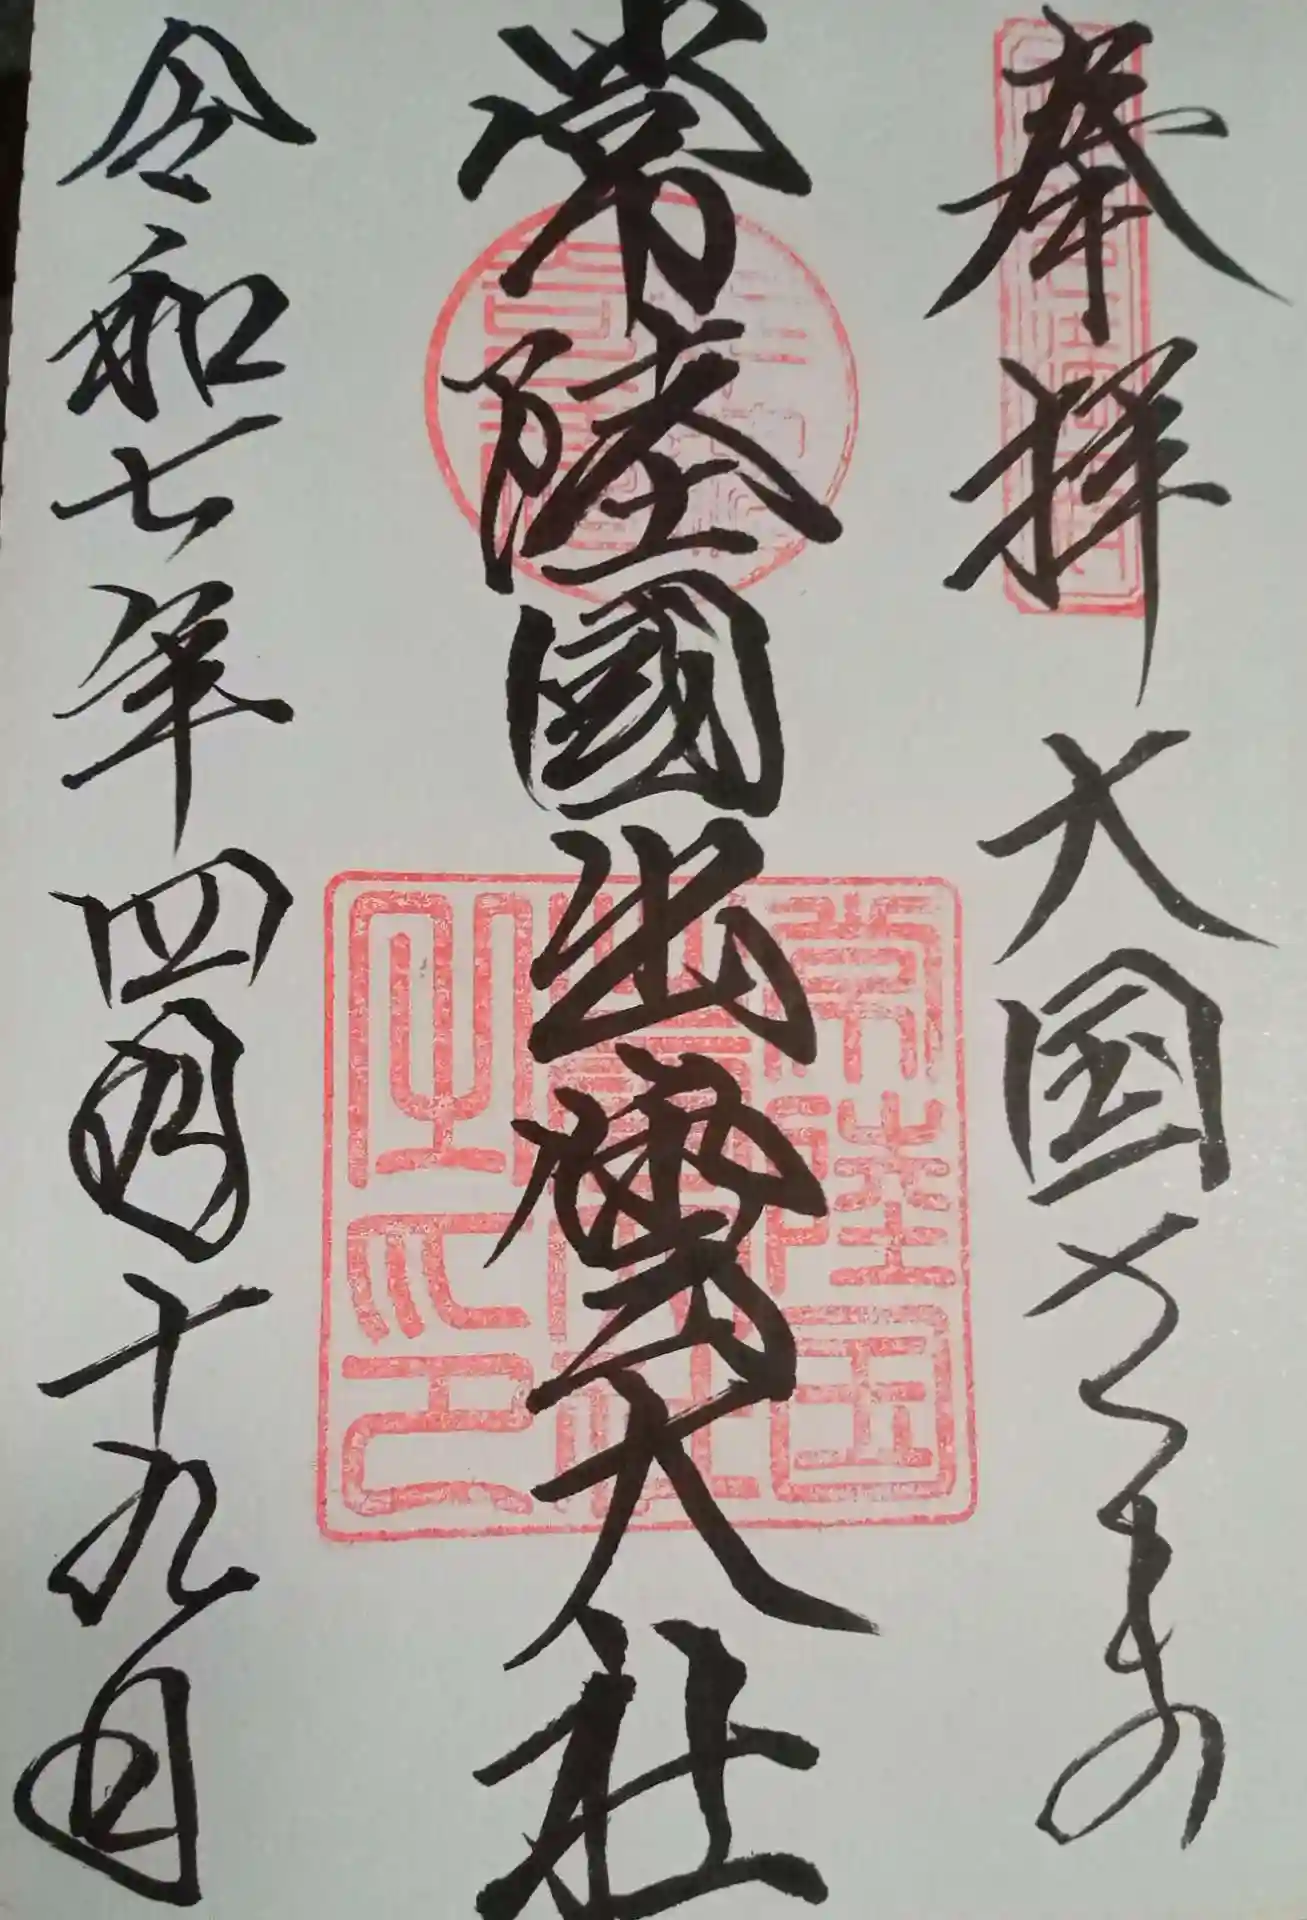 奉拝 大国さまの
常陸國出雲大社
令和七年四月十九日
常陸国出雲大社之印